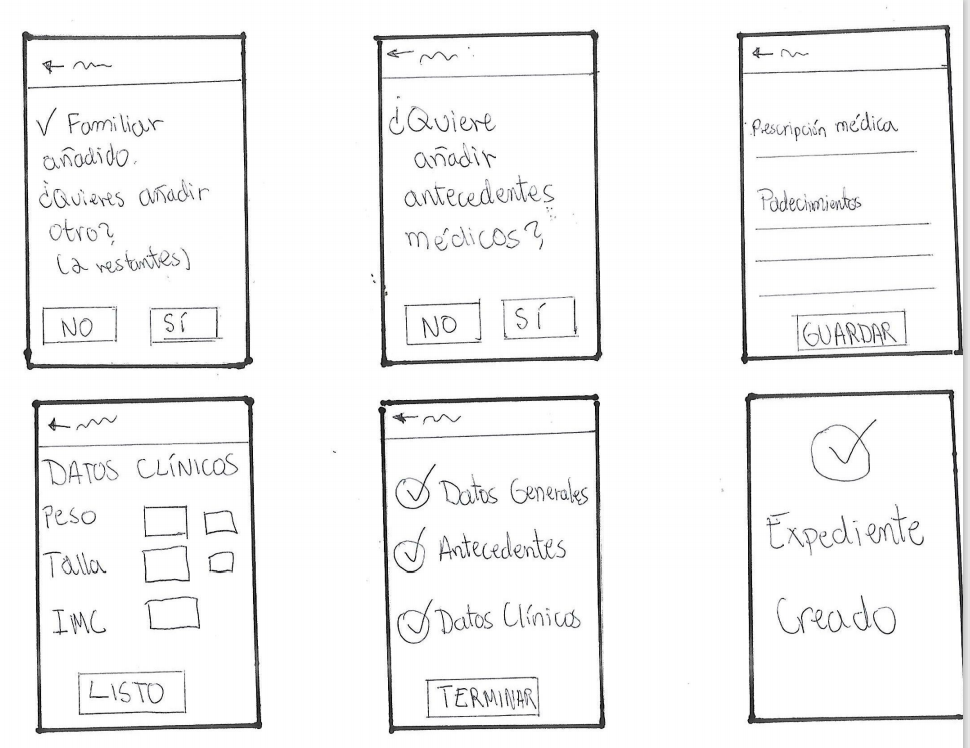 ✓ Familiar
añadido.
¿Quieres añadir
otro?
(2 restantes)
NO
SÍ
¿Quiere
añadir
antecedentes
médicos?
NO
SÍ
Prescripción médica
Padecimientos
GUARDAR
DATOS CLÍNICOS
Peso
Talla
IMC
LISTO
Datos Generales
Antecedentes
Datos Clínicos
TERMINAR
Expediente
Creado